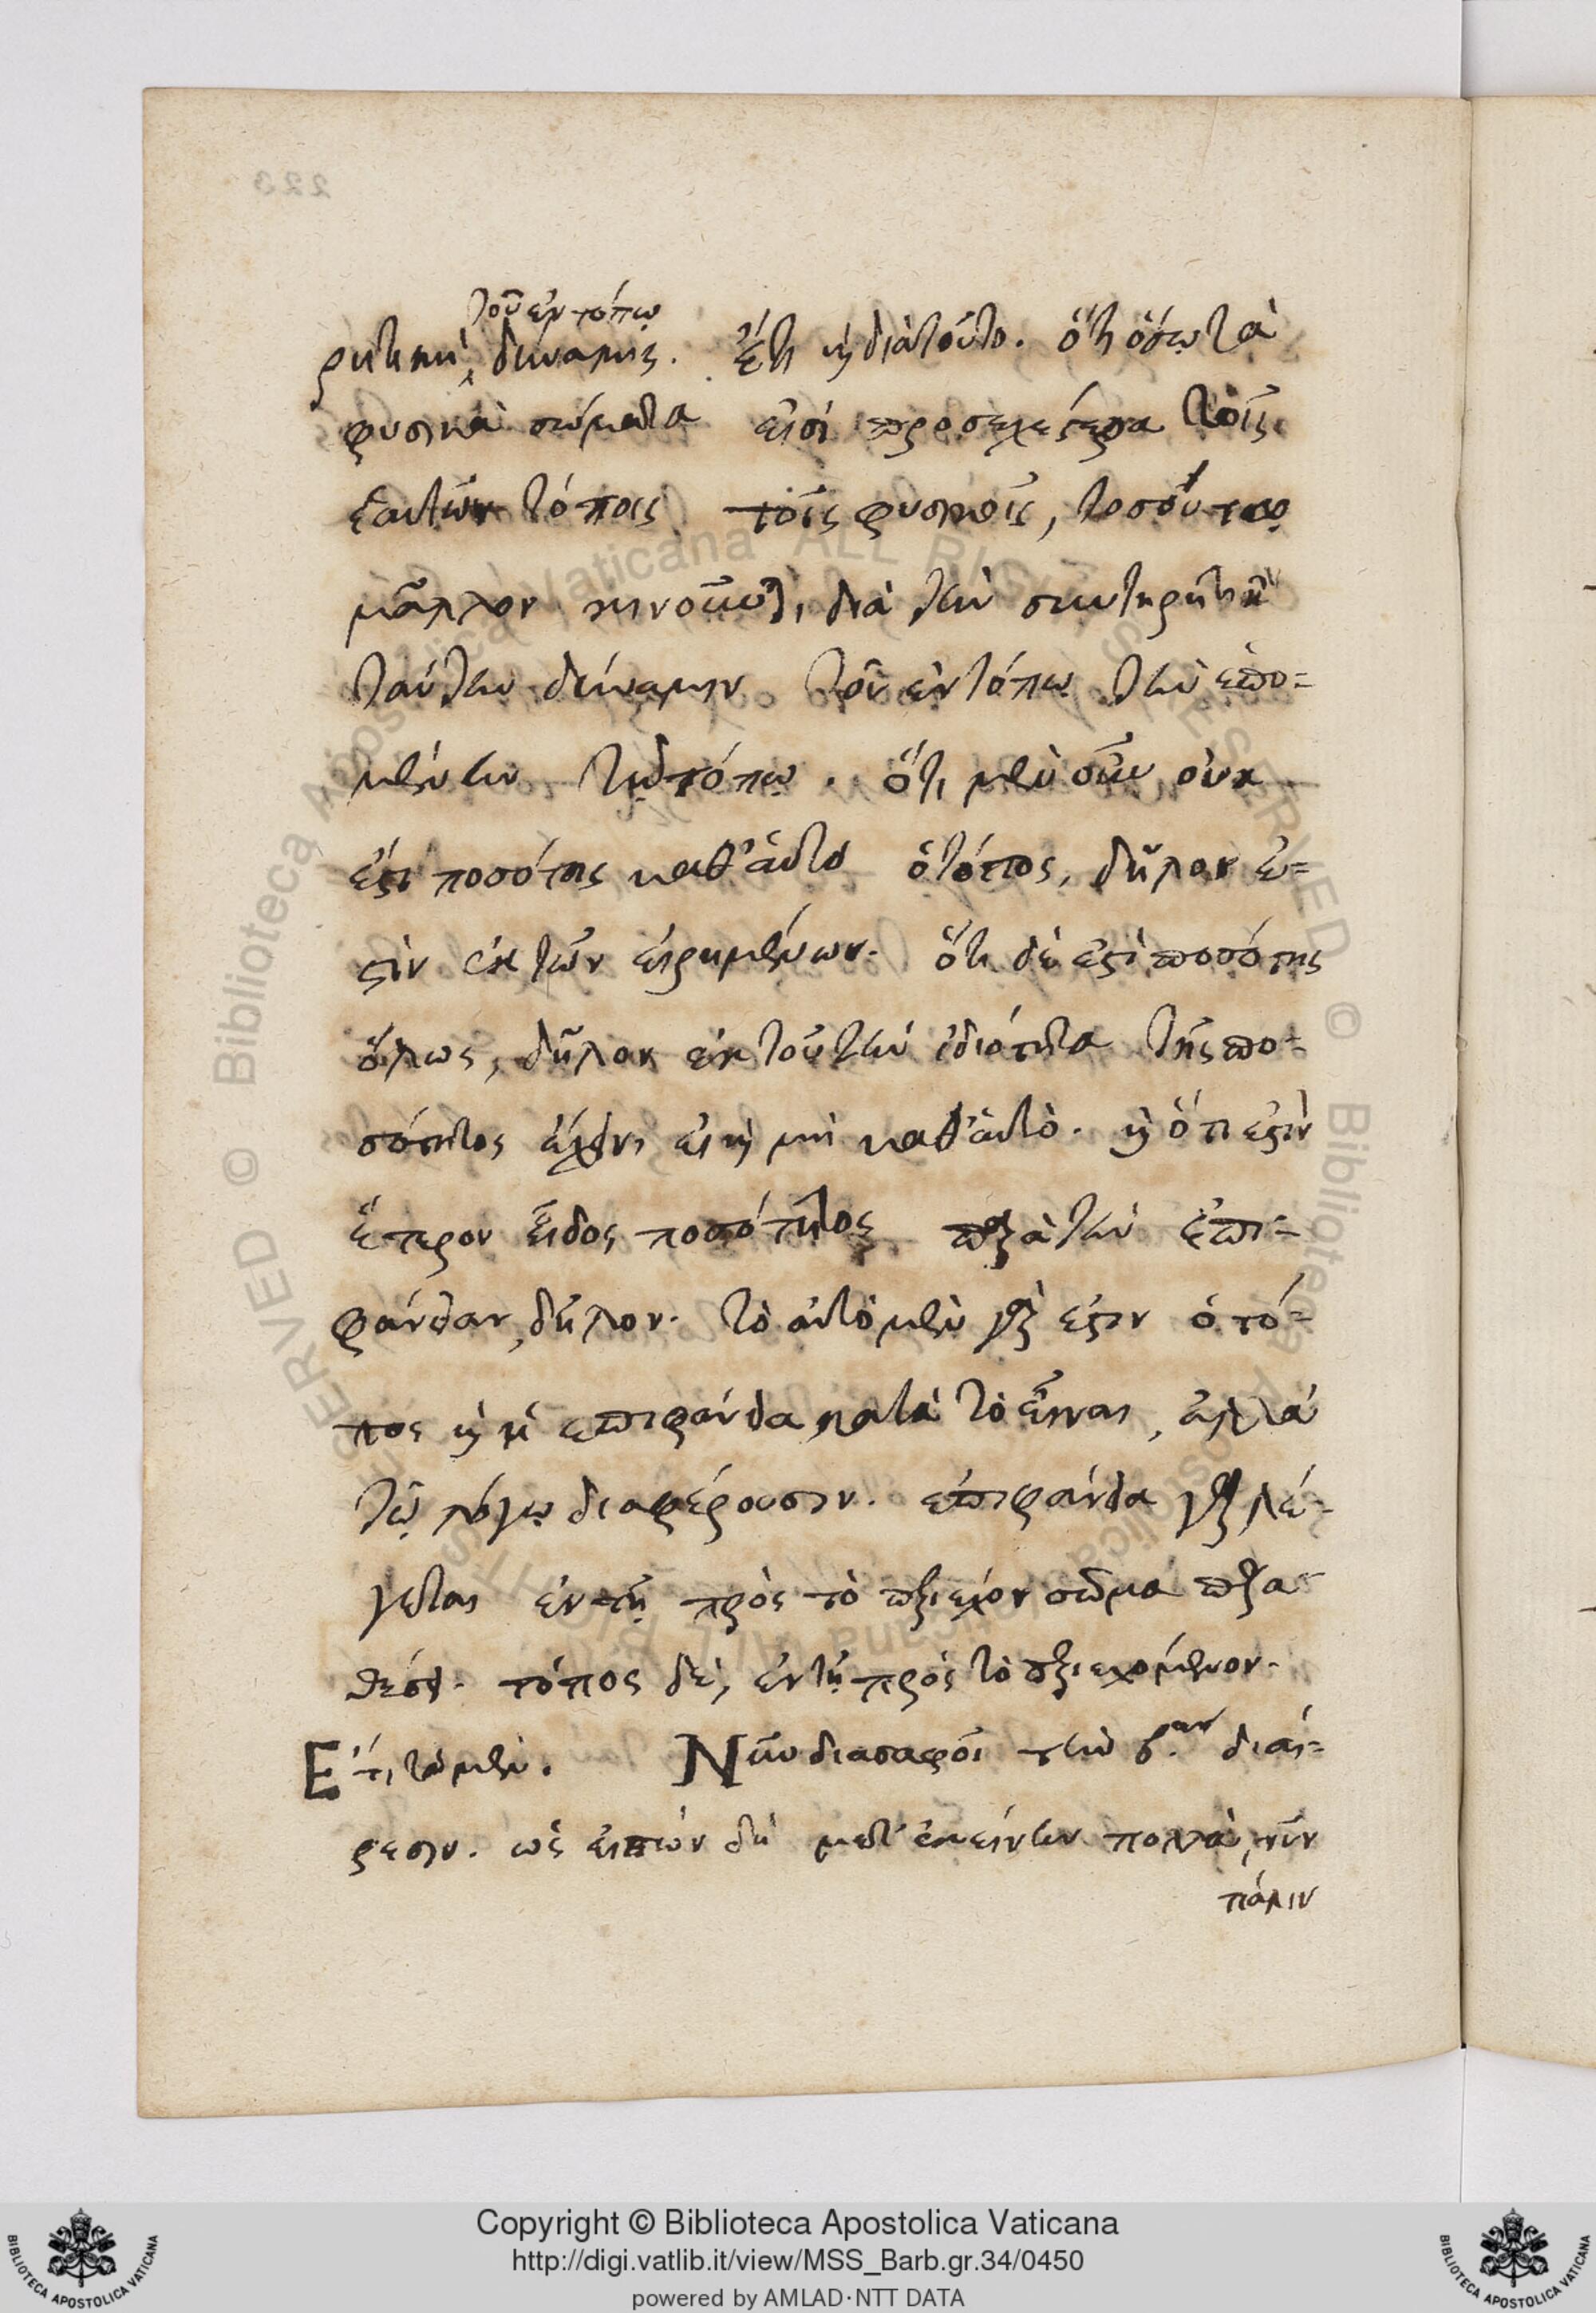 τοῦ ἐν τόπῳ
ρητικὴ δύναμις. ἔτι καὶ διὰ τοῦτο. ὅτι ὅσῳ τὰ
φυσικὰ σώματα εἰσὶ προσεχέστερα τοῖς
ἑαυτῶν τόποις τοῖς φυσικοῖς, τοσούτῳ
μᾶλλον κινοῦνται, διὰ τὴν συντηρητικὴν
ταύτην δύναμιν τοῦ ἐν τόπῳ τὴν ἑπο-
μένην τῷ τόπῳ. ὅτι μὲν οὖν οὐκ
ἐστι ποσότης καθ' αὑτὸ ὁ τόπος, δῆλον ἐ-
στὶν ἐκ τῶν εἰρημένων. ὅτι δὲ ἐστὶ ποσότης
ὅλως, δῆλον ἐκ τοῦ τὴν ἰδιότητα τῆς πο-
σότητος ἔχειν εἰ καὶ μὴ καθ' αὑτὸ. καὶ ὅτι ἐστὶν
ἕτερον εἶδος ποσότητος παρὰ τὴν ἐπι-
φάνειαν, δῆλον. τὸ αὐτὸ μὲν γάρ ἐστιν ὁ τό-
πος καὶ ἡ ἐπιφάνεια κατὰ τὸ εἶναι, ἀλλὰ
τῷ λόγῳ διαφέρουσιν. ἐπιφάνεια γὰρ λέ-
γεται ἐν τῇ πρὸς τὸ περιέχον σῶμα παρα-
θέσει. τόπος δὲ, ἐν τῇ πρὸς τὸ περιεχόμενον.
Ἔτι τὰ μὲν. Νῦν διασαφοῖ τὴν β.αν διαί-
ρεσιν. ὡς εἰπὼν δὴ μετ' ἐκείνην πολλὰ, νῦν
πάλιν
223
Copyright © Biblioteca Apostolica Vaticana
http://digi.vatlib.it/view/MSS_Barb.gr.34/0450
powered by AMLAD·NTT DATA
BIBLIOTECA APOSTOLICA VATICANA
BIBLIOTECA APOSTOLICA VATICANA